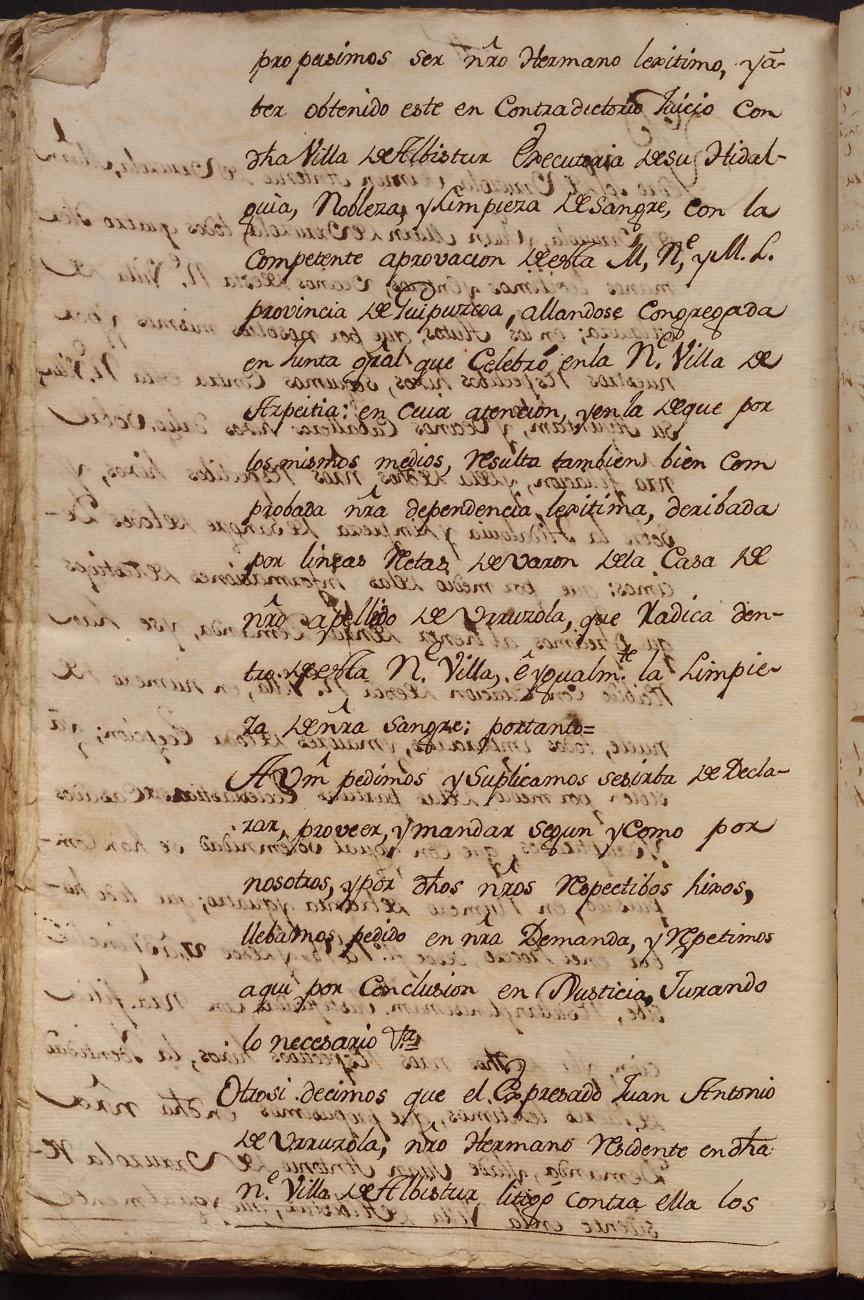 propusimos ser nr̃o Hermano lexitimo, y ã
ber obtenido este en Contradictorio Juicio Con
dh̃a Villa de Albistur Executoria de su Hidal-
guia, Nobleza, y Limpieza de Sangre, con la
competente aprovacion de esta M. N.e, y M. L.
provincia de Guipuzcoa, allandose Congregada
en Junta gr̃al que Celebró en la N.e Villa de
Azpeitia: en cuia atencion, y en la de que por
los mismos medios, resulta tambien bien com
probada nr̃a dependencia lexitima, deribada
por lineas Retas de varon de la Casa de
nr̃o apellido de Urruzola, que Radica den-
tro de esta N.e Villa, é ygualm.te la Limpie-
za de nr̃a Sangre: portanto=
A Vm̃ pedimos y Suplicamos se sirba de Decla-
rar, proveer, y mandar segun y Como por
nosotros, y por dh̃os nr̃os Respectibos hixos,
llebamos pedido en nr̃a Demanda, y Repetimos
aqui por Conclusion en Justicia, Jurando
lo necesario V.ta
Otrosi decimos que el Expresado Juan Antonio
de Urruzola, nr̃o Hermano Residente en dh̃a
N.e Villa de Albistur, litigó contra ella los